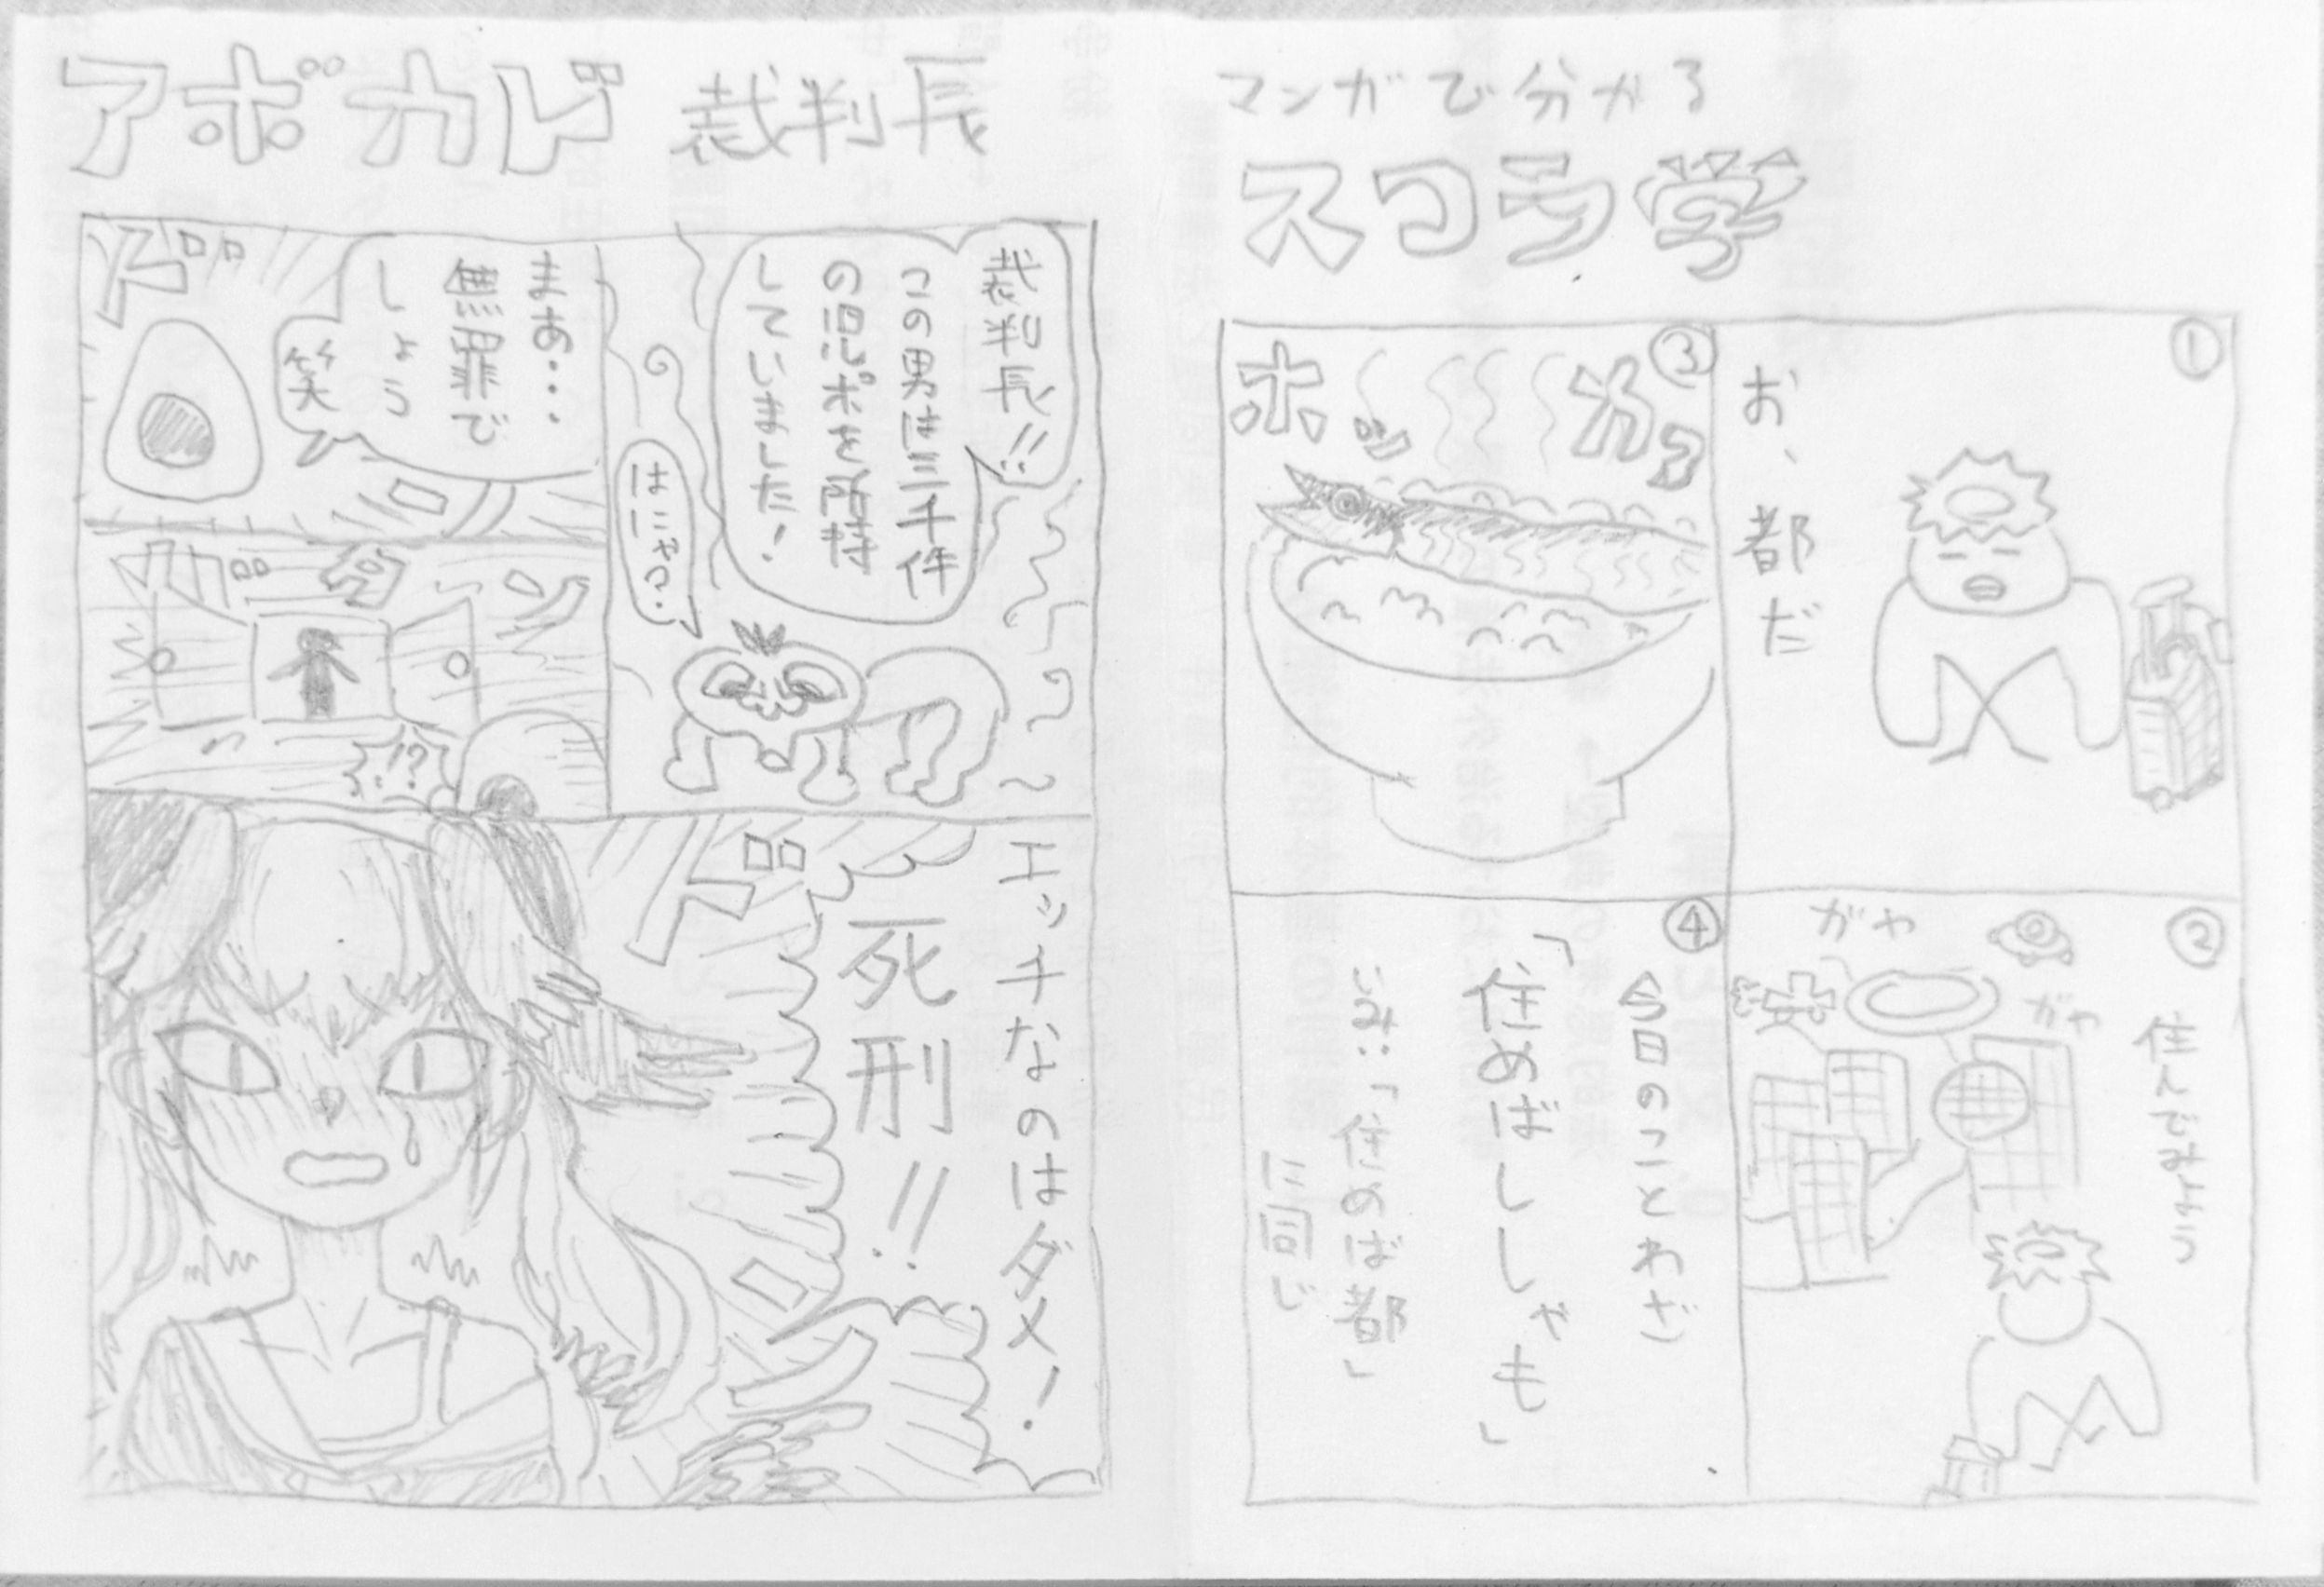 マンガで分かる
スコラ学
①
お、都だ
②
住んでみよう
ガヤ
ガヤ
③
ホッカァ
④
今日のことわざ
「住めばししゃも」
いみ:「住めば都」
に同じ
アボカド 裁判長
裁判長!!
この男は三千件
の児ポを所持
していました!
はにゃ?
まあ…
無罪で
しょう
笑
ドロン
ガタン
!?
エッチなのはダメ!
死刑!!
ドロン